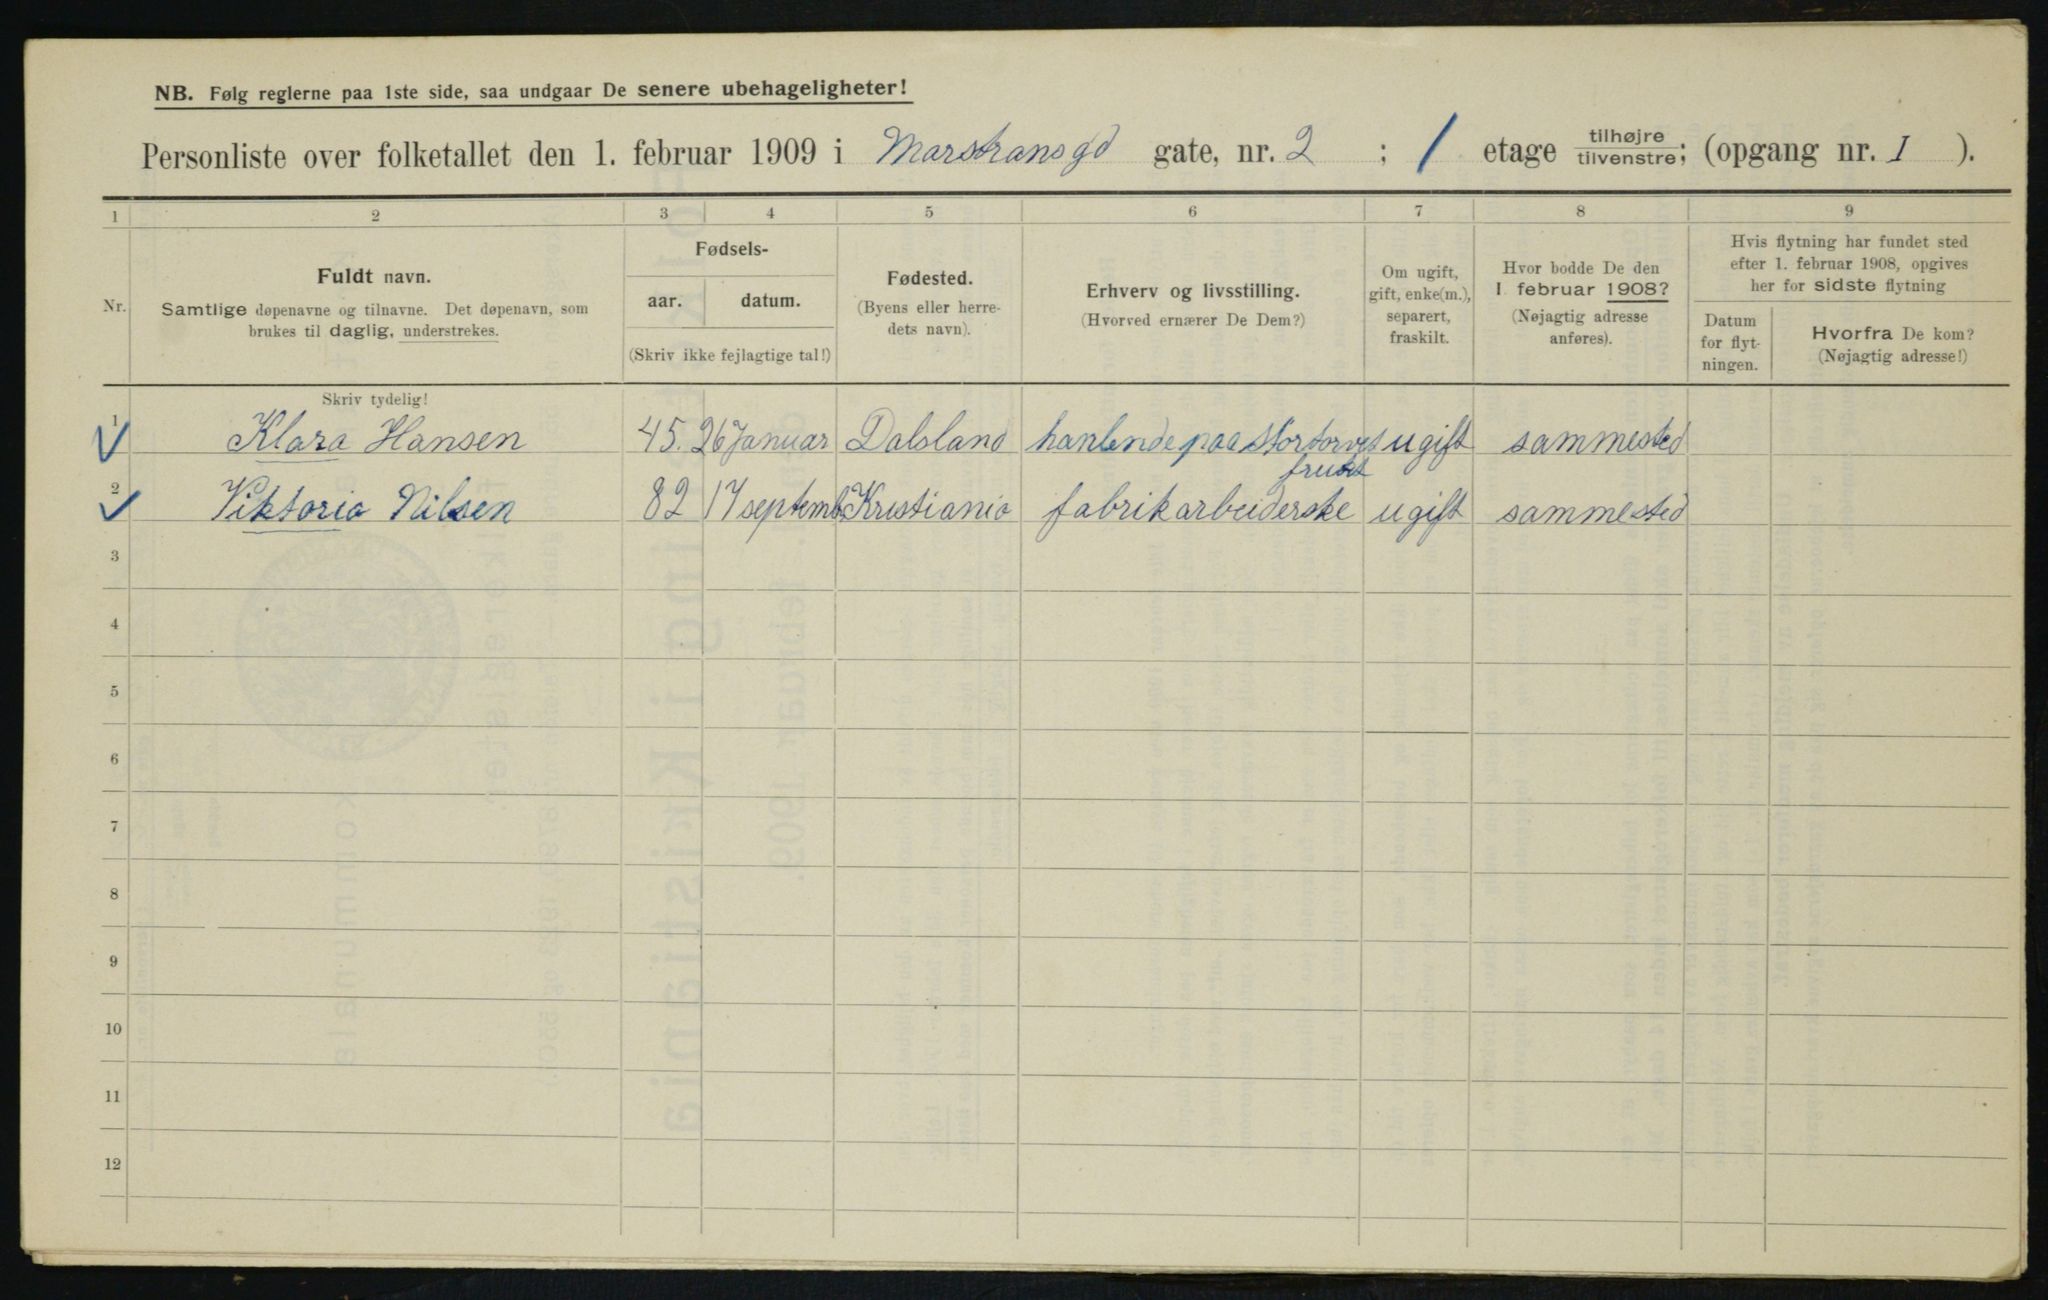 NB. Følg reglerne paa 1ste side, saa undgaar De senere ubehageligheter!
Personliste over folketallet den 1. februar 1909 i Marstransgd gate, nr. 2 ; 1 etage tilhøjre/tilvenstre; (opgang nr. I ).
1 2 3 4 5 6 7 8 9
Nr.
Fuldt navn.
Samtlige døpenavne og tilnavne. Det døpenavn, som
brukes til daglig, understrekes.
Fødsels-
aar. datum.
(Skriv ikke fejlagtige tal!)
Fødested.
(Byens eller herre-
dets navn).
Erhverv og livsstilling.
(Hvorved ernærer De Dem?)
Om ugift,
gift, enke(m.),
separert,
fraskilt.
Hvor bodde De den
1 februar 1908?
(Nøjagtig adresse
anføres).
Hvis flytning har fundet sted
efter 1. februar 1908, opgives
her for sidste flytning
Datum
for flyt-
ningen.
Hvorfra De kom?
(Nøjagtig adresse!)
Skriv tydelig!
1 Klara Hansen 45. 26 Januar Dalsland hanlende paa Stortorvet ugift sammested
frukt
2 Viktoria Nilsen 82 17 septemb Kristiania fabrikarbeiderske ugift sammested
3
4
5
6
7
8
9
10
11
12